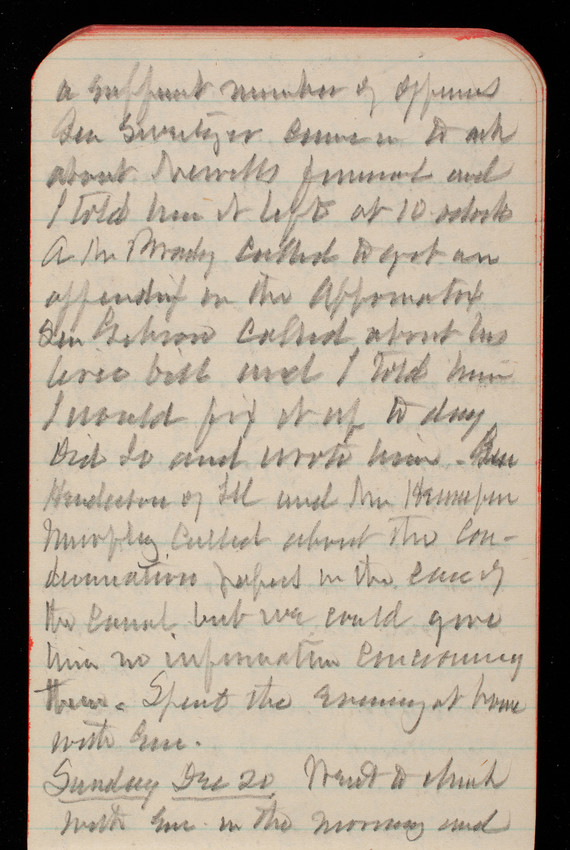 a sufficient number of officers
Gen Sweitzer came in to ask
about Newells funeral and
I told him it left at 10 oclock
A Mr Brady called to get an
appendix in the Appomatox
Gen Gibson called about his
levee bill and I told him
I would fix it up to day
Did so and wrote him. Gen
Henderson of Ill and Mr Hennepin
Murphy called about the Con-
demnation papers in the case of
the Canal but we could give
him no information concerning
them. Spent the evening at home
with Em.
Sunday Dec 20 Went to chuch
with Em in the morning and